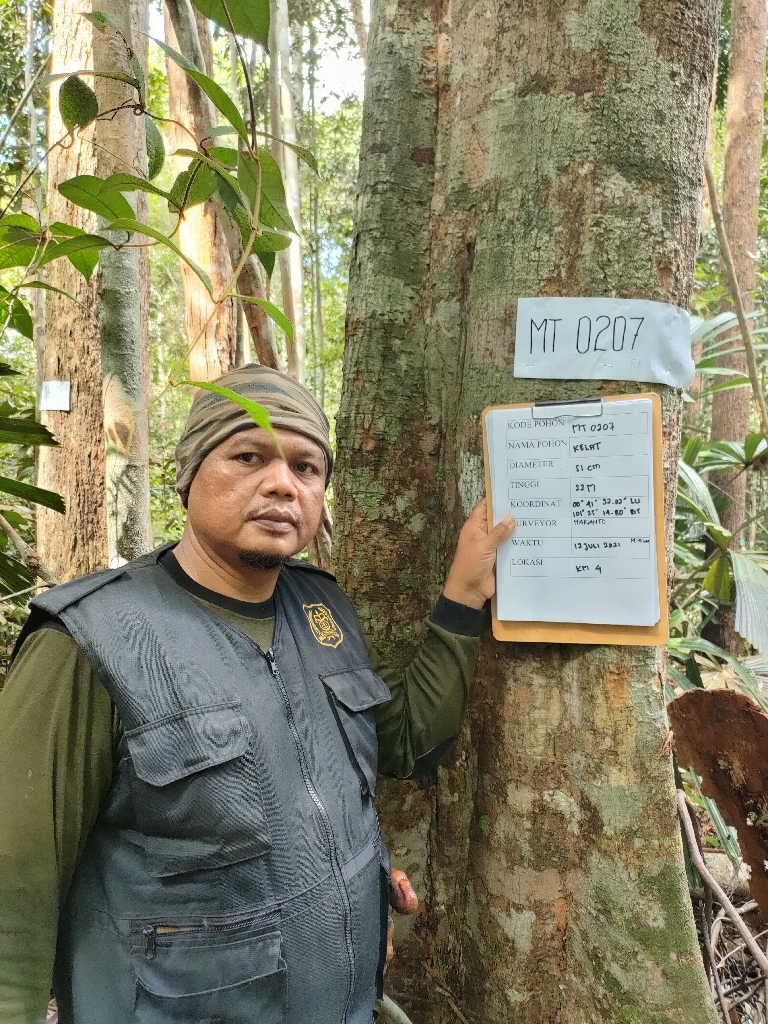 MT 0207
KODE POHON MT 0207
NAMA POHON KELAT
DIAMETER 51 cm
TINGGI 22 M
KOORDINAT 00° 41' 32.02" LU
101° 21' 19.80" BT
SURVEYOR HARIANTO
WAKTU 12 JULI 2021
LOKASI KM 4